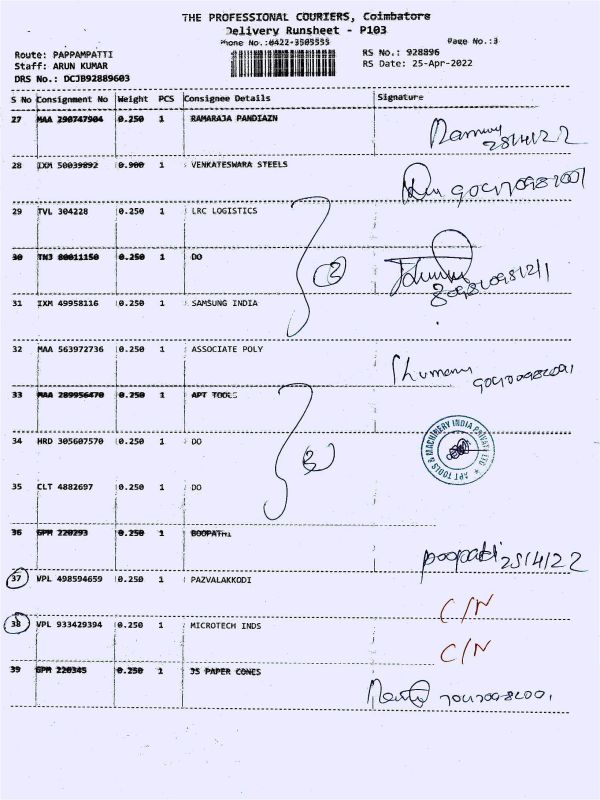 THE PROFESSIONAL COURIERS, Coimbatore
Delivery Runsheet - P103
Phone No.:0422-3505555
Page No.:3
Route: PAPPAMPATTI
RS No.: 928896
Staff: ARUN KUMAR
RS Date: 25-Apr-2022
DRS No.: DCJB92889603
S No Consignment No Weight PCS Consignee Details Signature
27 MAA 290747904 0.250 1 RAMARAJA PANDIAZN
28/4/22
28 IXM 50039892 0.900 1 VENKATESWARA STEELS
29 TVL 304228 0.250 1 LRC LOGISTICS
30 TNJ 80011150 0.250 1 DO
3
31 IXM 49958116 0.250 1 SAMSUNG INDIA
32 MAA 563972736 0.250 1 ASSOCIATE POLY
33 MAA 289956470 0.250 1 APT TOOLS
34 HRD 305607570 0.250 1 DO
3
APT TOOLS & MACHINERY INDIA PRIVATE LTD
35 CLT 4882697 0.250 1 DO
36 GPM 220293 0.250 1 BOOPATHI
25/4/22
37 VPL 498594659 0.250 1 PAZVALAKKODI
C/N
38 VPL 933429394 0.250 1 MICROTECH INDS
C/N
39 GPM 220345 0.250 1 JS PAPER CONES